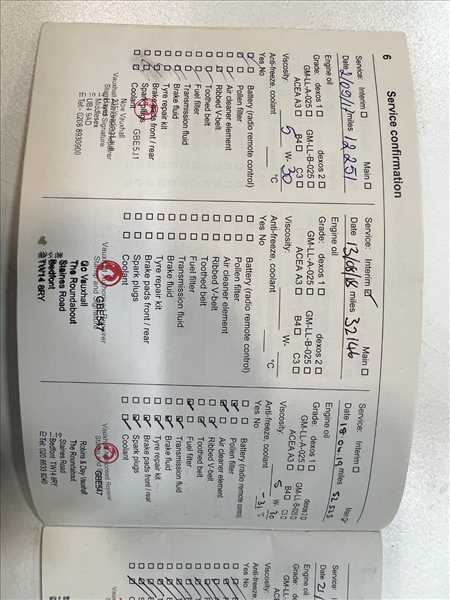 6
Service confirmation
Service:
Interim
Main
Date
miles
12 251
Engine oil
Grade:
dexos 1
dexos 2
GM-LL-A-025
GM-LL-B-025
ACEA A3
B4
C3
Viscosity:
5
W-
30
Anti-freeze, coolant
°C
Yes No
Battery (radio remote control)
Pollen filter
Air cleaner element
Ribbed V-belt
Toothed belt
Fuel filter
Transmission fluid
Brake fluid
Tyre repair kit
Brake pads front / rear
Spark plugs
Coolant
GBE5J1
Now Vauxhall
Middlesex
UB4 9AD
Service:
Interim
Main
Date 13/08/18 miles 32146
Engine oil
Grade:
dexos 1
dexos 2
GM-LL-A-025
GM-LL-B-025
ACEA A3
B4
C3
Viscosity:
W-
Anti-freeze, coolant
°C
Yes No
Battery (radio remote control)
Pollen filter
Air cleaner element
Ribbed V-belt
Toothed belt
Fuel filter
Transmission fluid
Brake fluid
Tyre repair kit
Brake pads front / rear
Spark plugs
Coolant
GBE547
Go Vauxhall
The Roundabout
Staines Road
Bedfont
TW14 8RY
Service:
Interim
Date 18.04.19 miles
Engine oil
Grade:
dexos 1
dexos 2
GM-LL-A-025
GM-LL-B-025
ACEA A3
B4
Viscosity:
5
W-
30
Anti-freeze, coolant
Yes No
Battery (radio remote control)
Pollen filter
Air cleaner element
Ribbed V-belt
Toothed belt
Fuel filter
Transmission fluid
Brake fluid
Tyre repair kit
Brake pads front / rear
Spark plugs
Coolant
GBE547
Robins & Day Vauxhall
The Roundabout
Staines Road
Bedfont TW14 8RY
Service:
Date 21/
Engine oil
Grade:
GM-LL
ACE
Viscosity:
Anti-freeze
Yes No